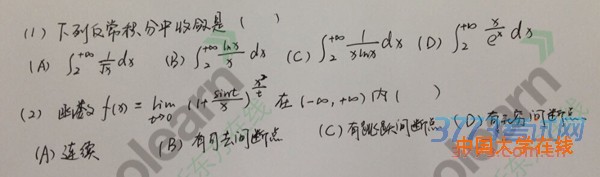 (1) 下列反常积分中收敛是 ( )
(A) ∫₂^{+∞} 1/√x dx (B) ∫₂^{+∞} lnx/x dx (C) ∫₂^{+∞} 1/(xlnx) dx (D) ∫₂^{+∞} x/e^x dx
(2) 函数 f(x) = lim_{t→0} (1+ sint/x)^{x²/t} 在 (-∞, +∞) 内 ( )
(A) 连续 (B) 有可去间断点 (C) 有跳跃间断点 (D) 有无穷间断点
中国大学在线